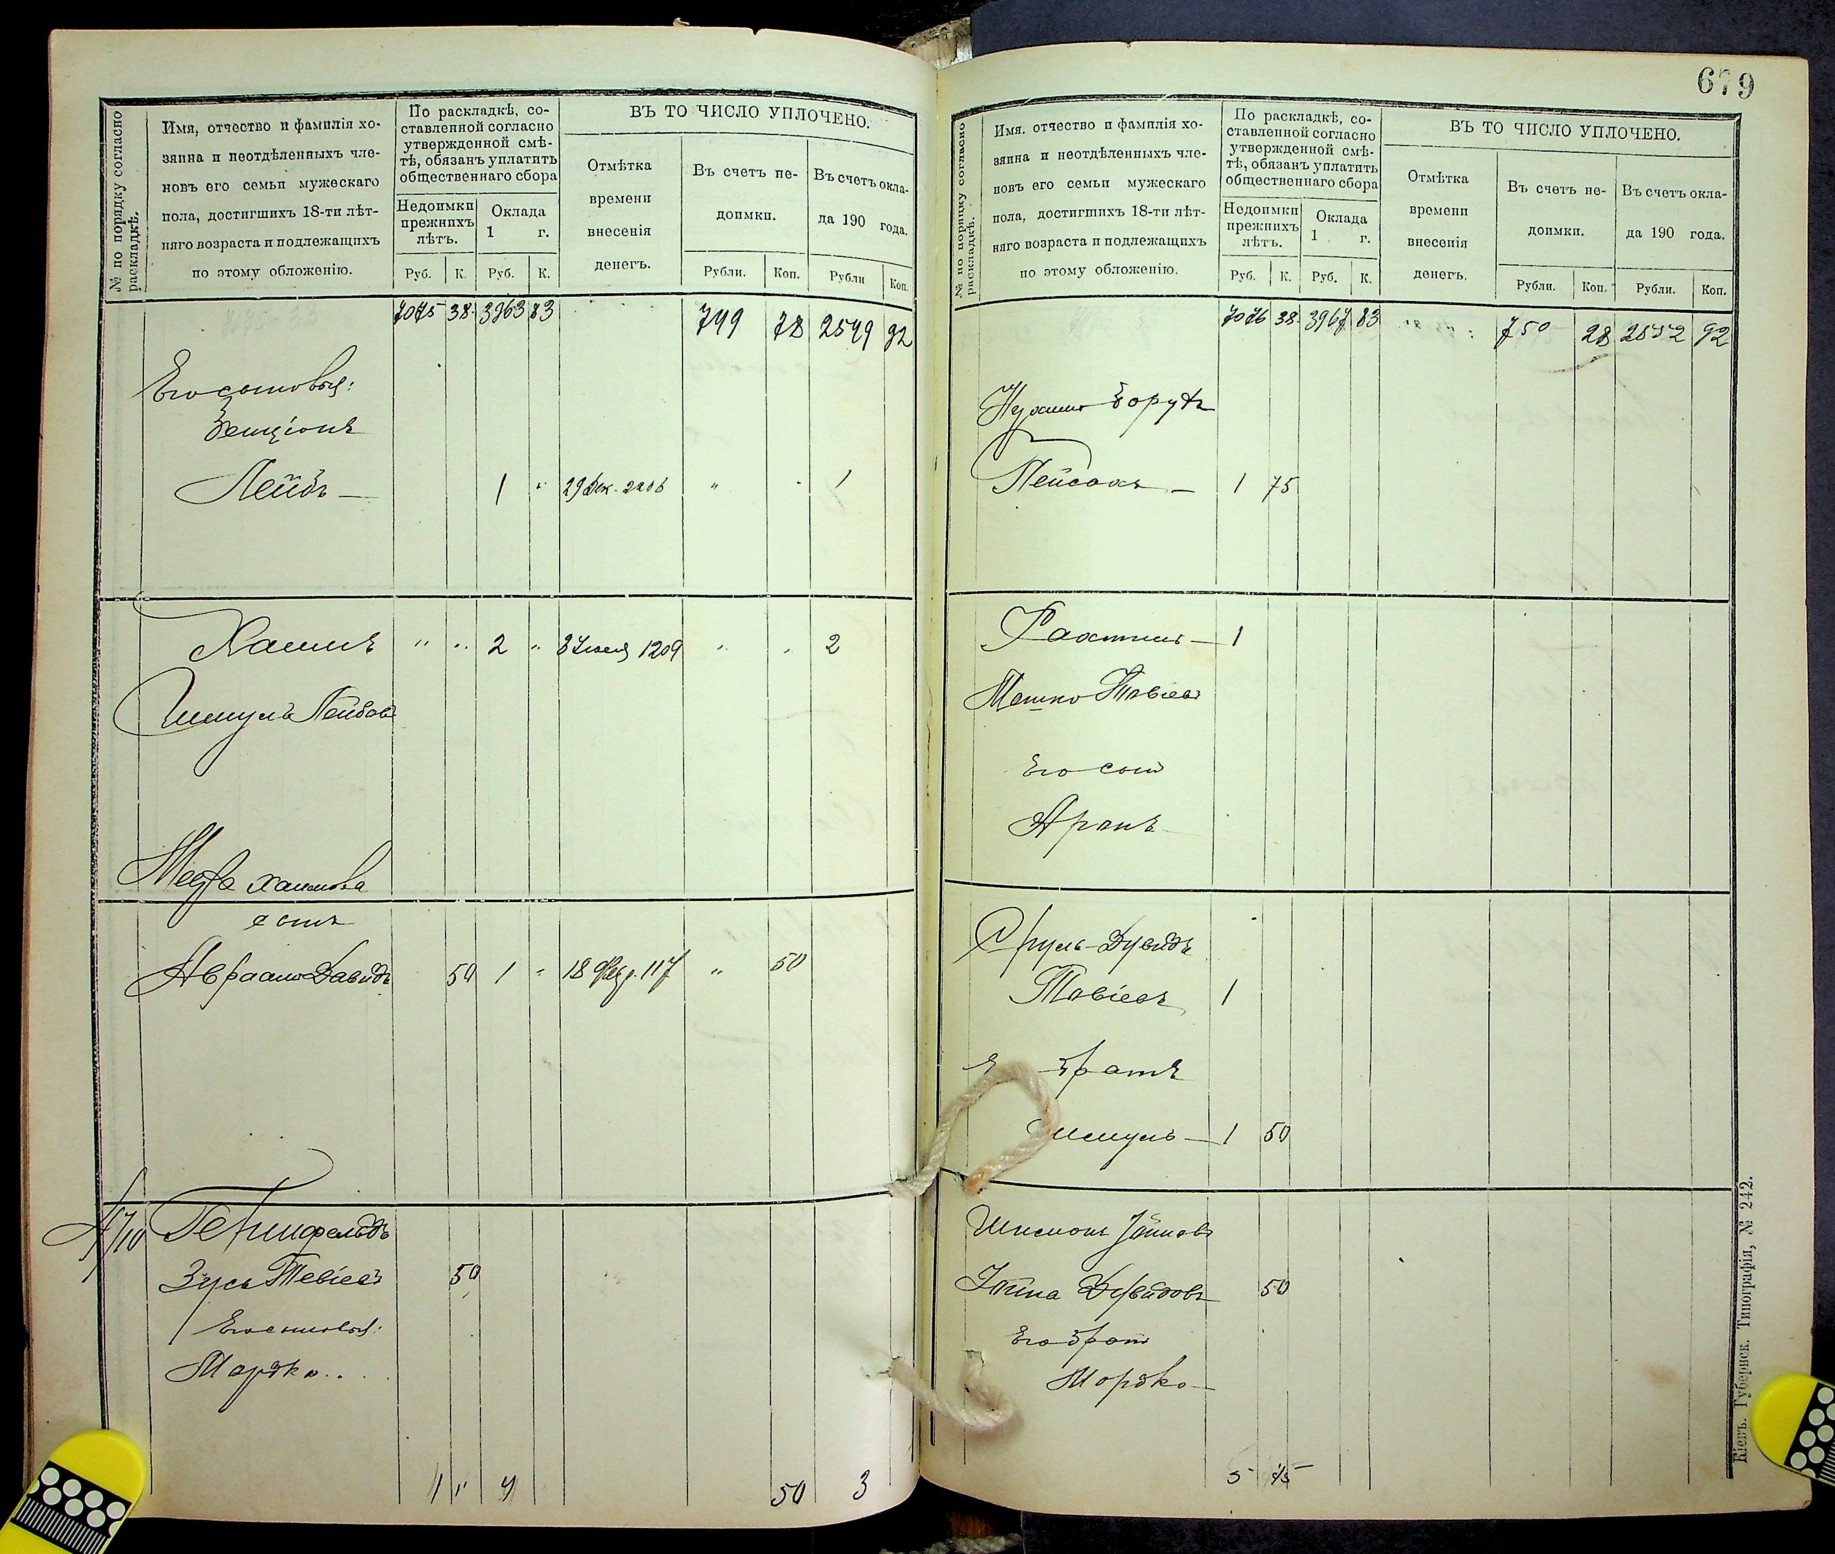 № по порядку согласно раскладкѣ.
Имя, отчество и фамилія хо-
зяина и неотдѣленныхъ чле-
новъ его семьи мужескаго
пола, достигшихъ 18-ти лѣт-
няго возраста и подлежащихъ
по этому обложенію.
По раскладкѣ, со-
ставленной согласно
утвержденной смѣ-
тѣ, обязанъ уплатить
общественнаго сбора
Недоимки
прежнихъ
лѣтъ.
Оклада
1 г.
Руб. К. Руб. К.
ВЪ ТО ЧИСЛО УПЛОЧЕНО.
Отмѣтка
времени
внесенія
денегъ.
Въ счетъ не-
доимки.
Въ счетъ окла-
да 190 года.
Рубли. Коп. Рубли Коп.
7075 38 3963 83 749 78 2549 92
Его сыновья:
Бенціонъ
Лейбъ — 1 " 29 Дек. 2206 " 1
Хаимъ " " 2 " 3 1209 " " 2
Шмуль Лейбов
Хаимова
сынъ
Авраамъ Давидъ 50 1 " 18 Февр. 117 " 50
Зусь Тевіевъ 50
Его сыновья:
Мордко
1 " 4 50 3
679
№ по порядку согласно раскладкѣ.
Имя, отчество и фамилія хо-
зяина и неотдѣленныхъ чле-
новъ его семьи мужескаго
пола, достигшихъ 18-ти лѣт-
няго возраста и подлежащихъ
по этому обложенію.
По раскладкѣ, со-
ставленной согласно
утвержденной смѣ-
тѣ, обязанъ уплатить
общественнаго сбора
Недоимки
прежнихъ
лѣтъ.
Оклада
1 г.
Руб. К. Руб. К.
ВЪ ТО ЧИСЛО УПЛОЧЕНО.
Отмѣтка
времени
внесенія
денегъ.
Въ счетъ не-
доимки.
Въ счетъ окла-
да 190 года.
Рубли. Коп. Рубли. Коп.
7076 38 3967 83 750 28 2552 92
Нухим Борухъ
Пейсахъ — 1 75
— 1
Мошко Товіев
Его сын
Аронъ
Сруль-Дувидъ
Товіевъ 1
братъ
Шмуль — 1 50
Шимонъ
Дувидовъ 50
Его брат
Мордко —
5 75
Кіевъ. Губернск. Типографія, № 242.